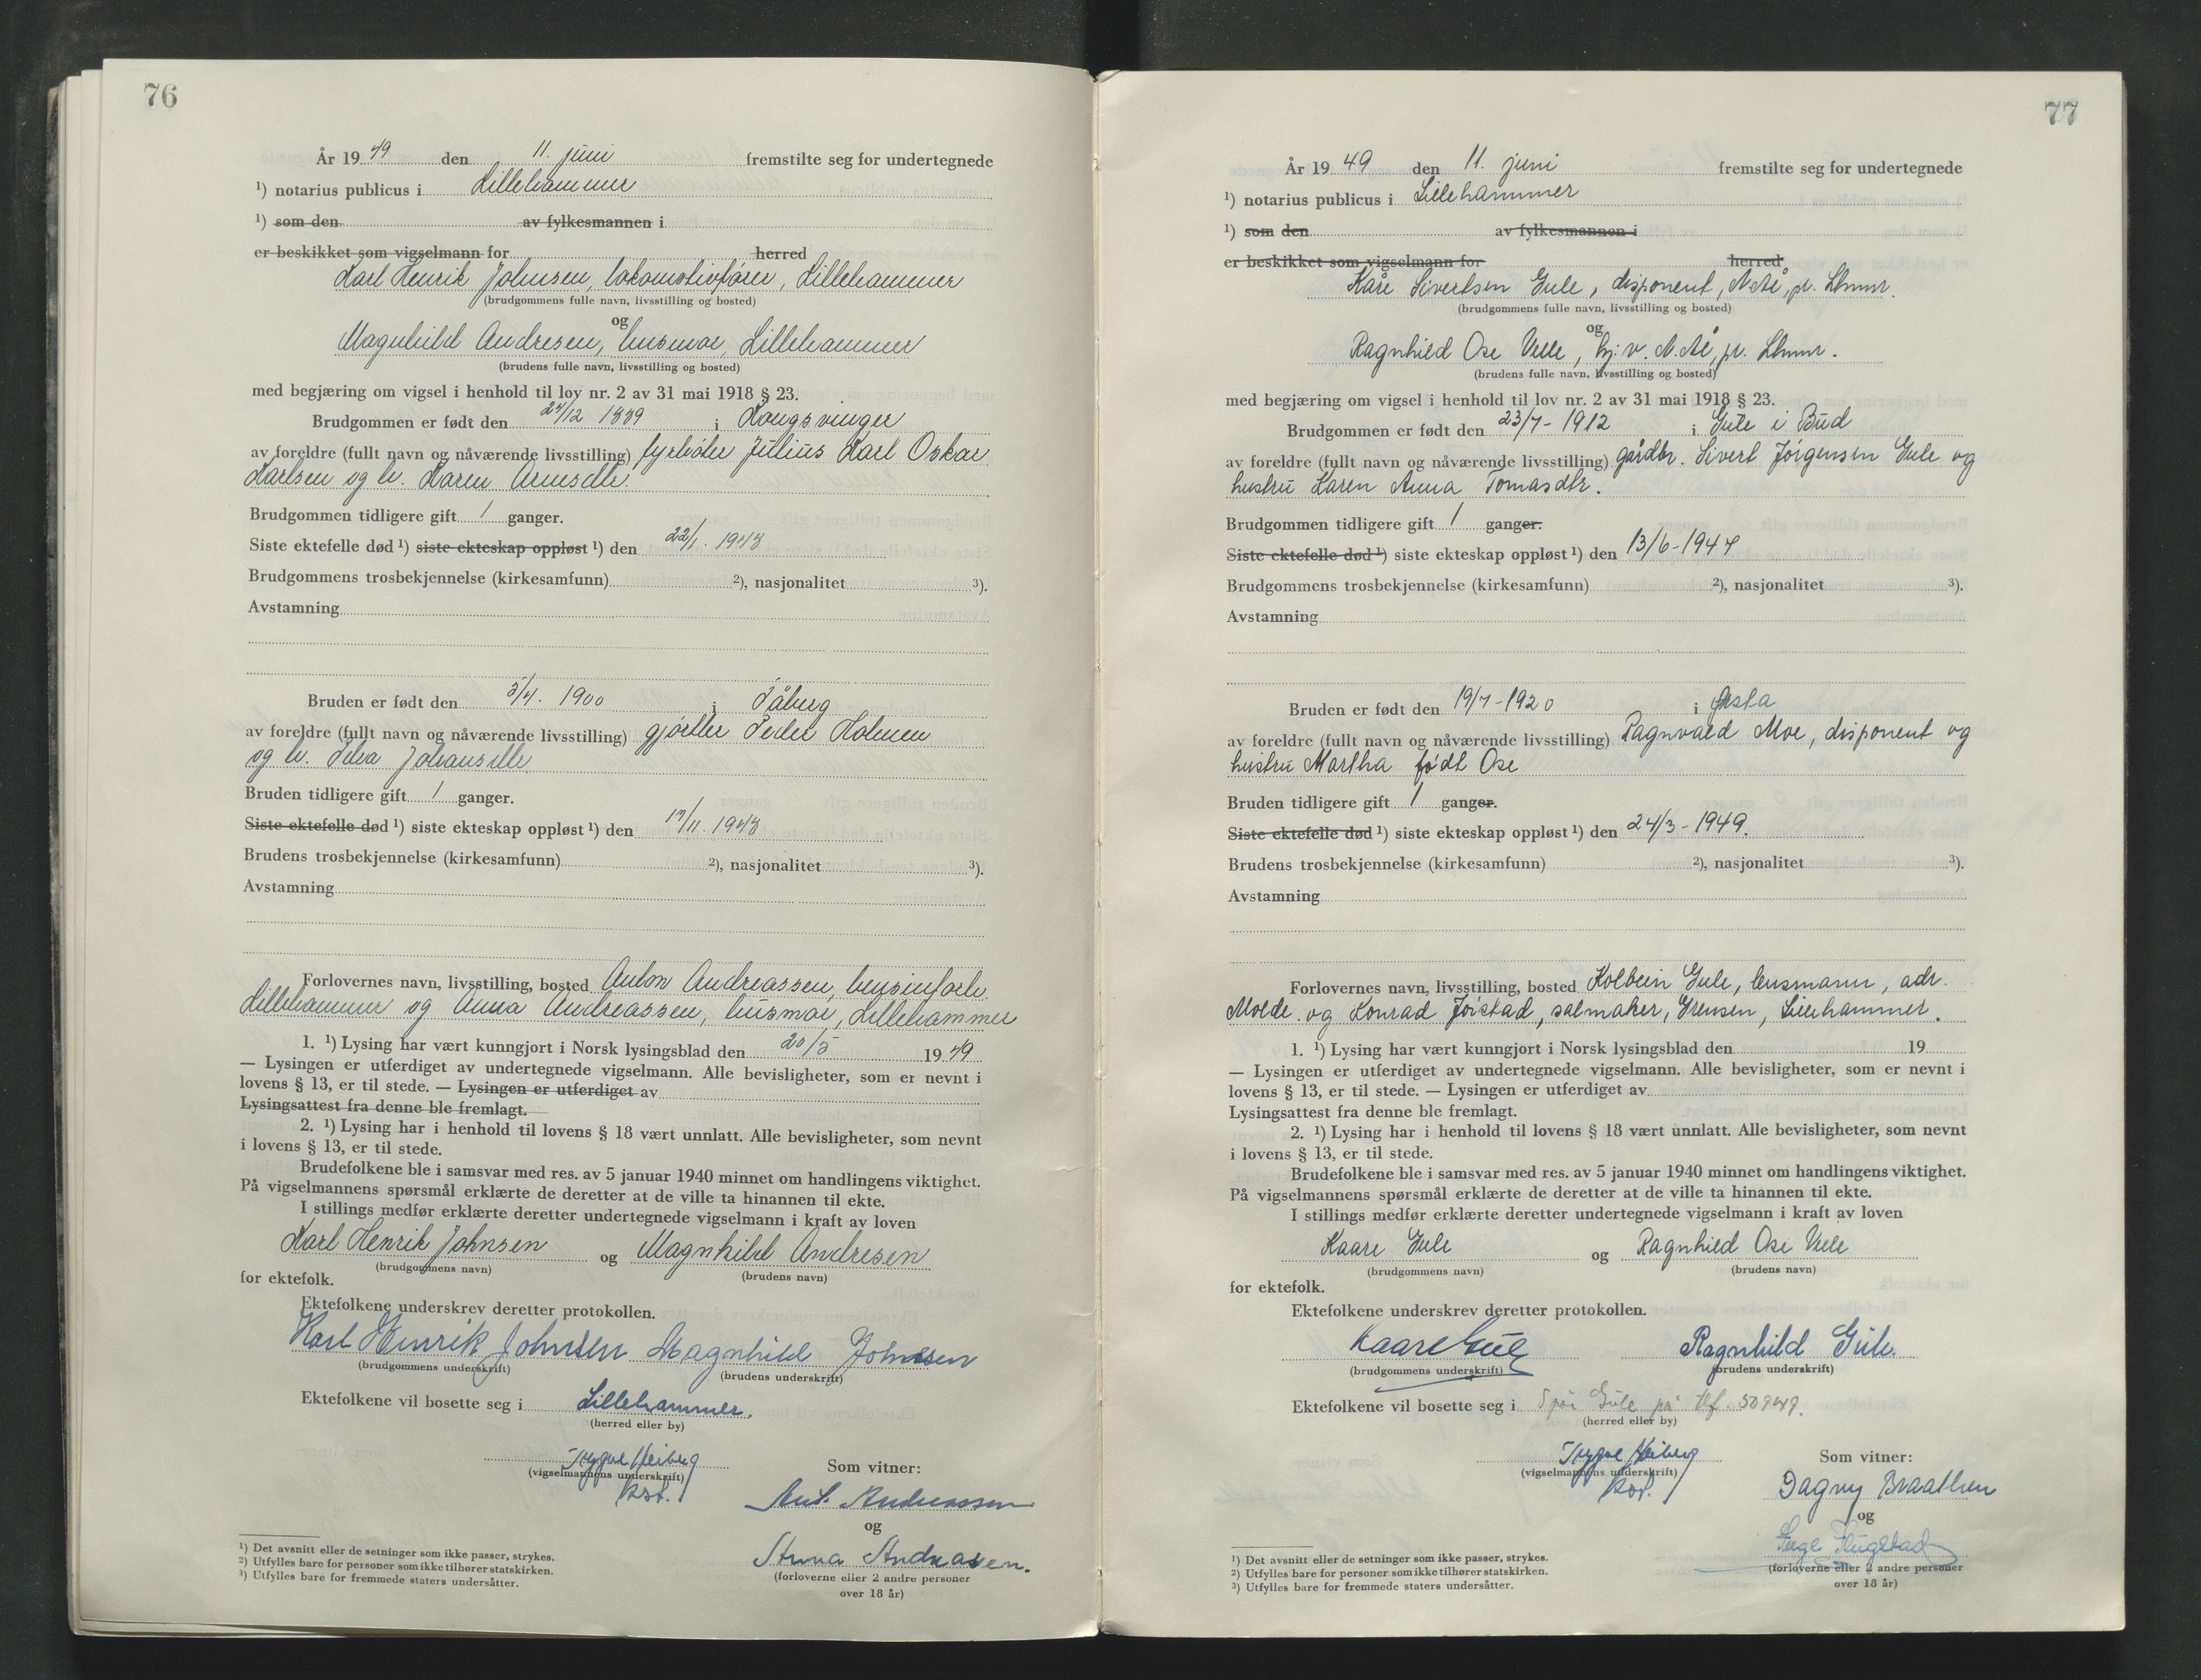 76
År 19 49 den 11. juni fremstilte seg for undertegnede
¹) notarius publicus i Lillehammer
¹) som den av fylkesmannen i
er beskikket som vigselmann for herred
Karl Henrik Johnsen, lokomotivfører, Lillehammer
(brudgommens fulle navn, livsstilling og bosted)
og
Magnhild Andresen, husmor, Lillehammer
(brudens fulle navn, livsstilling og bosted)
med begjæring om vigsel i henhold til lov nr. 2 av 31 mai 1918 § 23.
Brudgommen er født den 24/12 1889 i Kongsvinger
av foreldre (fullt navn og nåværende livsstilling) fyrbøter Julius Karl Oskar
Karlsen og h. Karen
Brudgommen tidligere gift 1 ganger.
Siste ektefelle død ¹) siste ekteskap oppløst ¹) den 22/1. 1948
Brudgommens trosbekjennelse (kirkesamfunn) ²), nasjonalitet ³).
Avstamning
Bruden er født den 5/4. 1900 i Fåberg
av foreldre (fullt navn og nåværende livsstilling) gjørtler Peder Holmen
og h.
Bruden tidligere gift 1 ganger.
Siste ektefelle død ¹) siste ekteskap oppløst ¹) den 17/11. 1948
Brudens trosbekjennelse (kirkesamfunn) ²), nasjonalitet ³).
Avstamning
Forlovernes navn, livsstilling, bosted Anton Andreassen,
Lillehammer og Anna Andreassen, husmor, Lillehammer
1. ¹) Lysing har vært kunngjort i Norsk lysingsblad den 20/5 19 49
— Lysingen er utferdiget av undertegnede vigselmann. Alle bevisligheter, som er nevnt i
lovens § 13, er til stede. — Lysingen er utferdiget av
Lysingsattest fra denne ble fremlagt.
2. ¹) Lysing har i henhold til lovens § 18 vært unnlatt. Alle bevisligheter, som nevnt
i lovens § 13, er til stede.
Brudefolkene ble i samsvar med res. av 5 januar 1940 minnet om handlingens viktighet.
På vigselmannens spørsmål erklærte de deretter at de ville ta hinannen til ekte.
I stillings medfør erklærte deretter undertegnede vigselmann i kraft av loven
Karl Henrik Johnsen og Magnhild Andresen
(brudgommens navn) (brudens navn)
for ektefolk.
Ektefolkene underskrev deretter protokollen.
Karl Henrik Johnsen Magnhild Johnsen
(brudgommens underskrift) (brudens underskrift)
Ektefolkene vil bosette seg i Lillehammer.
(herred eller by)
Trygve Heiberg
(vigselmannens underskrift)
kst.
Som vitner:
Ant. Andreassen
og
Anna Andreasen.
(forloverne eller 2 andre personer
over 18 år)
¹) Det avsnitt eller de setninger som ikke passer, strykes.
²) Utfylles bare for personer som ikke tilhører statskirken.
³) Utfylles bare for fremmede staters undersåtter.
77
År 19 49 den 11. juni fremstilte seg for undertegnede
¹) notarius publicus i Lillehammer
¹) som den av fylkesmannen i
er beskikket som vigselmann for herred
Kåre Sivertsen Gule, disponent, N. Ål, pr. Lhmr.
(brudgommens fulle navn, livsstilling og bosted)
og
Ragnhild Ose Velle, hj.v. N. Ål, pr. Lhmr.
(brudens fulle navn, livsstilling og bosted)
med begjæring om vigsel i henhold til lov nr. 2 av 31 mai 1918 § 23.
Brudgommen er født den 23/7 - 1912 i Gule i Bud
av foreldre (fullt navn og nåværende livsstilling) gårdbr. Sivert Jørgensen Gule og
hustru Karen Anna Tomasdtr.
Brudgommen tidligere gift 1 ganger.
Siste ektefelle død ¹) siste ekteskap oppløst ¹) den 13/6 - 1947
Brudgommens trosbekjennelse (kirkesamfunn) ²), nasjonalitet ³).
Avstamning
Bruden er født den 19/7 - 1920 i Ørsta
av foreldre (fullt navn og nåværende livsstilling) Ragnvald Moe, disponent og
hustru Martha født Ose
Bruden tidligere gift 1 ganger.
Siste ektefelle død ¹) siste ekteskap oppløst ¹) den 24/3 - 1949.
Brudens trosbekjennelse (kirkesamfunn) ²), nasjonalitet ³).
Avstamning
Forlovernes navn, livsstilling, bosted Kolbein Gule, lensmann, adr.
Molde. og Konrad Jøistad, salmaker, Grensen, Lillehammer.
1. ¹) Lysing har vært kunngjort i Norsk lysingsblad den 19
— Lysingen er utferdiget av undertegnede vigselmann. Alle bevisligheter, som er nevnt i
lovens § 13, er til stede. — Lysingen er utferdiget av
Lysingsattest fra denne ble fremlagt.
2. ¹) Lysing har i henhold til lovens § 18 vært unnlatt. Alle bevisligheter, som nevnt
i lovens § 13, er til stede.
Brudefolkene ble i samsvar med res. av 5 januar 1940 minnet om handlingens viktighet.
På vigselmannens spørsmål erklærte de deretter at de ville ta hinannen til ekte.
I stillings medfør erklærte deretter undertegnede vigselmann i kraft av loven
Kaare Gule og Ragnhild Ose Velle
(brudgommens navn) (brudens navn)
for ektefolk.
Ektefolkene underskrev deretter protokollen.
Kaare Gule Ragnhild Gule.
(brudgommens underskrift) (brudens underskrift)
Ektefolkene vil bosette seg i Spør Gule på tlf. 50949.
(herred eller by)
Trygve Heiberg
(vigselmannens underskrift)
kst.
Som vitner:
Dagny Braathen
og
(forloverne eller 2 andre personer
over 18 år)
¹) Det avsnitt eller de setninger som ikke passer, strykes.
²) Utfylles bare for personer som ikke tilhører statskirken.
³) Utfylles bare for fremmede staters undersåtter.